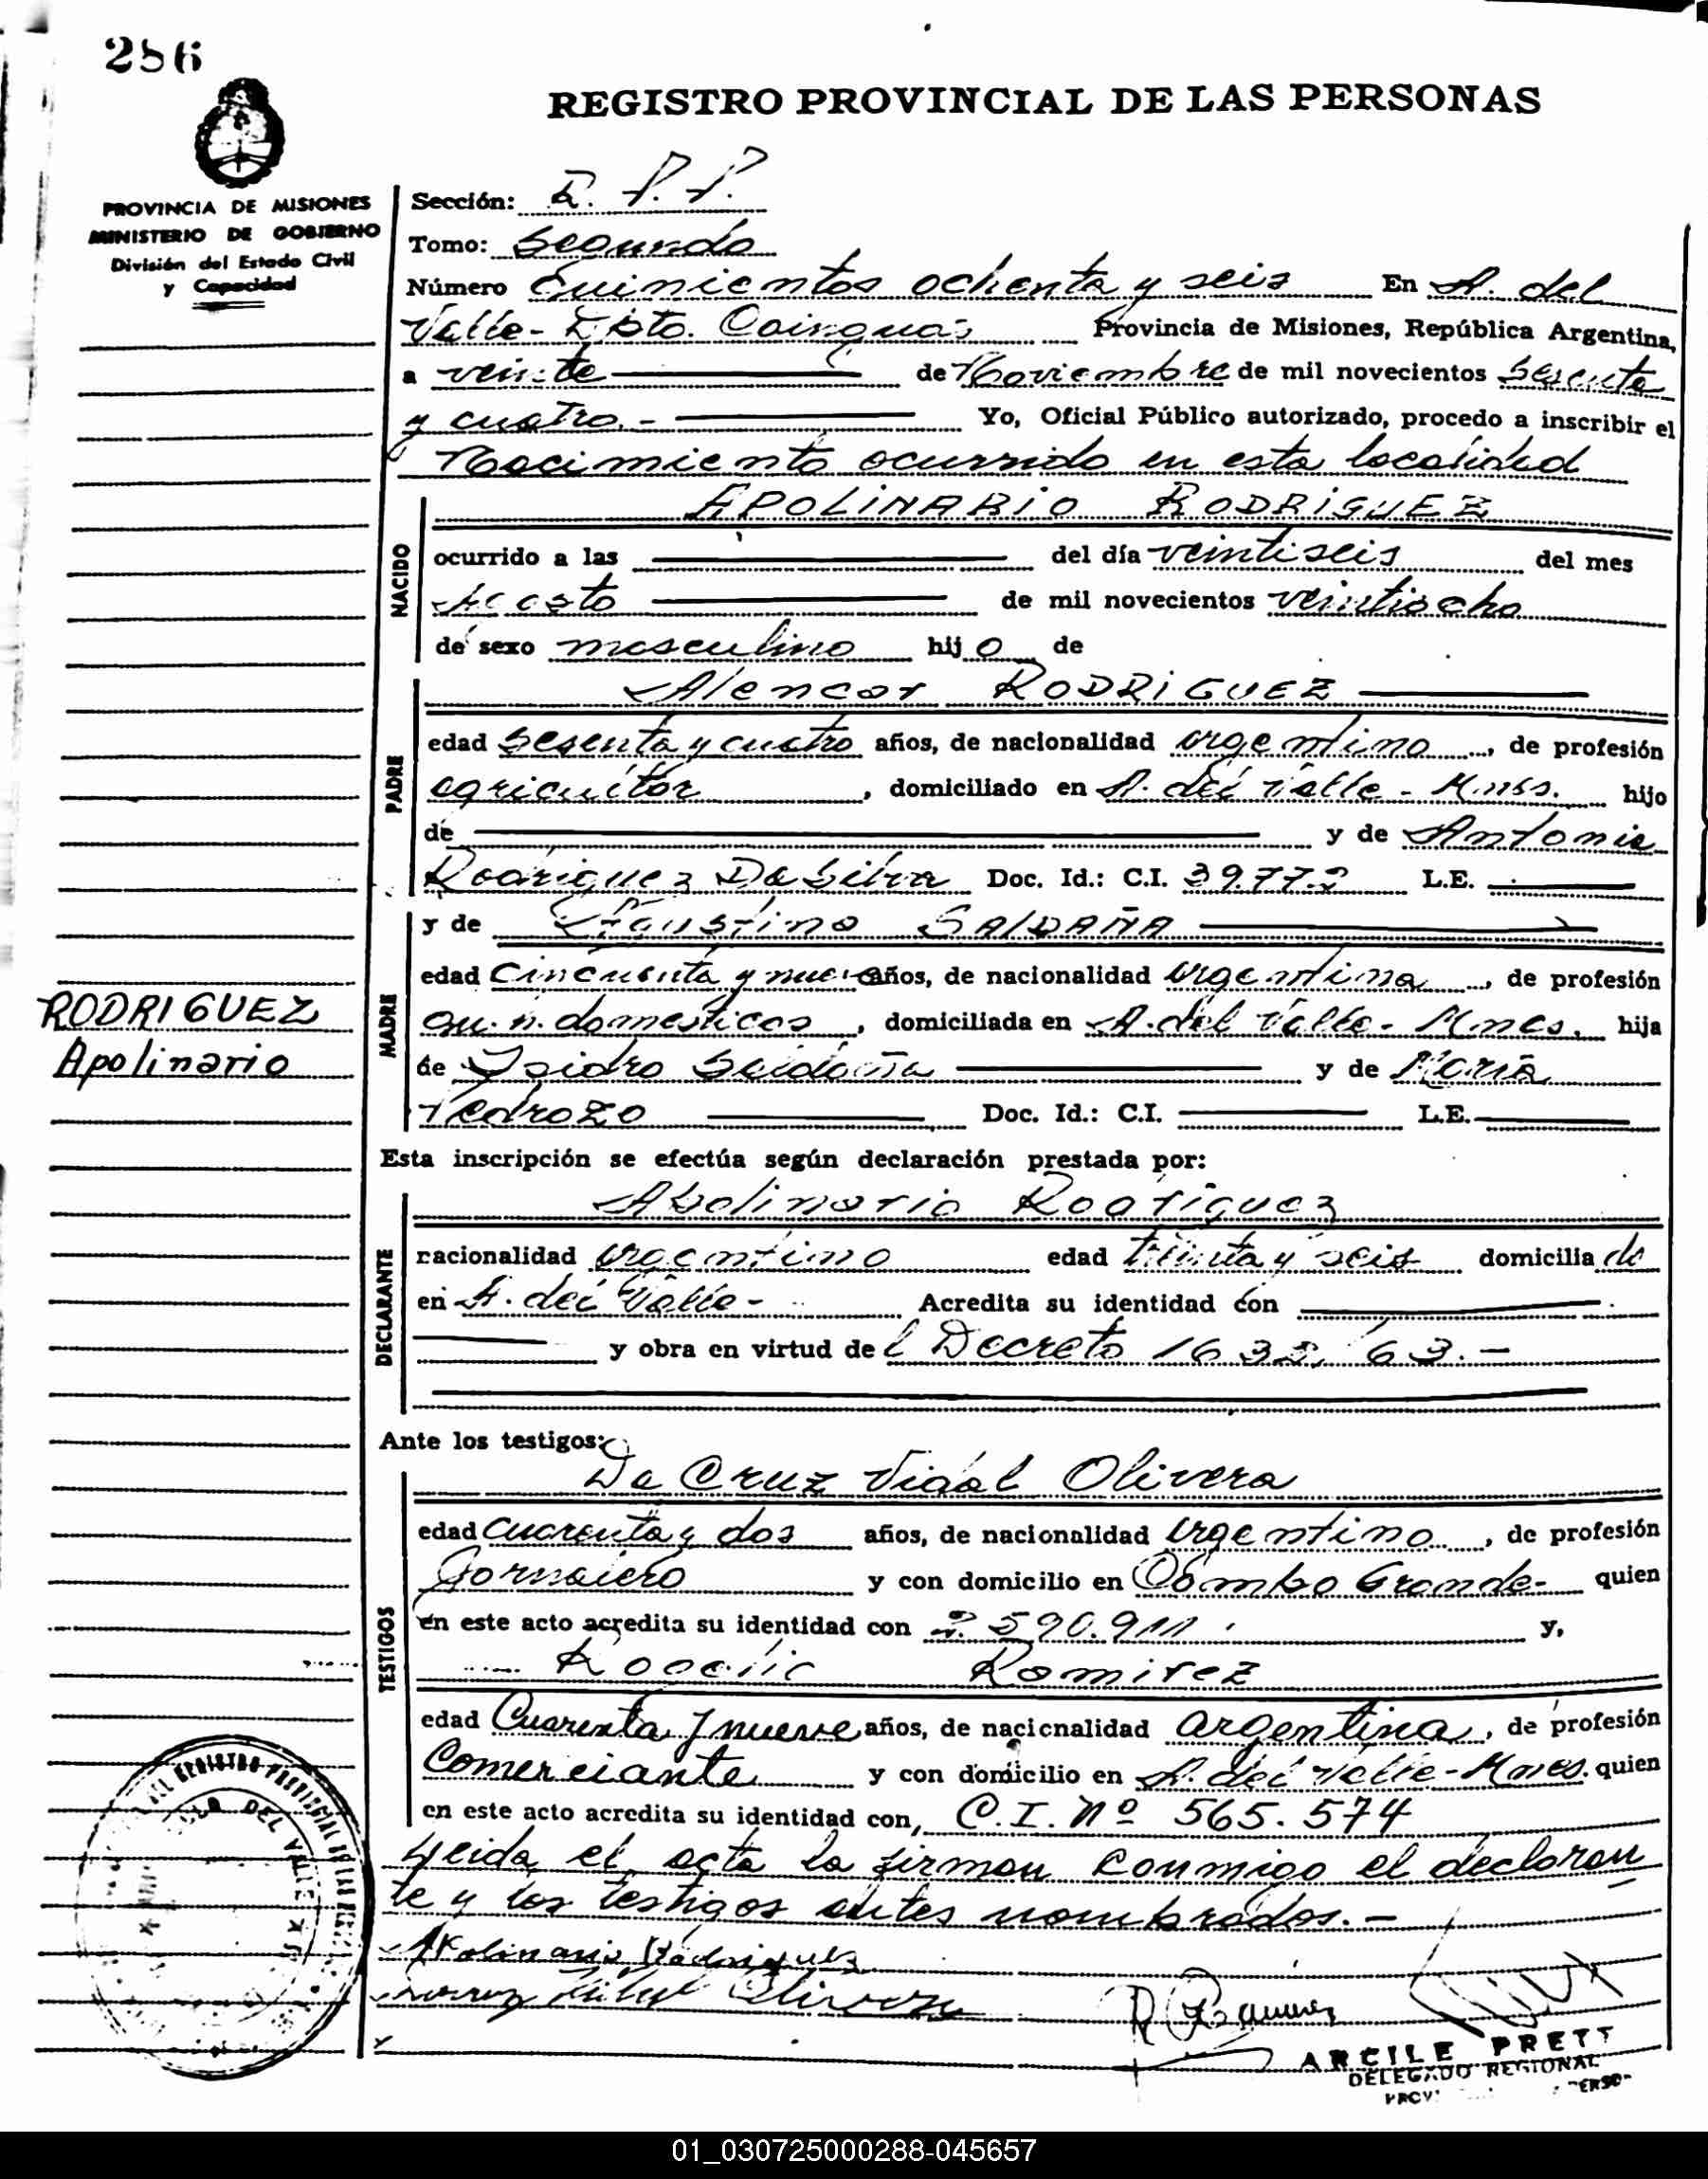 286
REGISTRO PROVINCIAL DE LAS PERSONAS
PROVINCIA DE MISIONES
MINISTERIO DE GOBIERNO
División del Estado Civil
y Capacidad
Sección: D. P. P.
Tomo: Segundo
Número Quinientos ochenta y seis En A. del
Valle- Dpto. Cainguás Provincia de Misiones, República Argentina,
a veinte de Noviembre de mil novecientos sesenta
y cuatro.- Yo, Oficial Público autorizado, procedo a inscribir el
Nacimiento ocurrido en esta localidad
NACIDO
APOLINARIO RODRIGUEZ
ocurrido a las del día veintiseis del mes
Agosto de mil novecientos veintiocho
de sexo masculino hijo de
PADRE
Alencar RODRIGUEZ
edad sesenta y cuatro años, de nacionalidad argentino, de profesión
agricultor, domiciliado en A. del Valle - Mnes. hijo
de y de Antonia
Rodriguez Da Silva Doc. Id.: C.I. 39.772 L.E.
MADRE
y de Faustina SALDAÑA
edad Cincuenta y nueve años, de nacionalidad argentina, de profesión
qu. h. domesticos, domiciliada en A. del Valle- Mnes. hija
de Isidro Saldaña y de María
Pedrozo Doc. Id.: C.I. L.E.
RODRIGUEZ
Apolinario
Esta inscripción se efectúa según declaración prestada por:
DECLARANTE
Apolinario Rodríguez
nacionalidad argentino edad treinta y seis domiciliado
en A. del Valle- Acredita su identidad con
y obra en virtud del Decreto 1632/63.-
Ante los testigos:
TESTIGOS
Da Cruz Vidal Olivera
edad cuarenta y dos años, de nacionalidad argentino, de profesión
Jornalero y con domicilio en Grande- quien
en este acto acredita su identidad con 2.590.911 y,
Rogelio Ramirez
edad Cuarenta y nueve años, de nacionalidad argentina, de profesión
Comerciante y con domicilio en A. del Valle-Mnes. quien
en este acto acredita su identidad con, C.I. Nº 565.574
Leida el acta la firman conmigo el declaran
te y los testigos antes nombrados.-
Apolinario Rodriguez
Vidal Olivera
R Ramirez
ARCILE PRETT
DELEGADO REGIONAL
DEL REGISTRO PROVINCIAL DE LAS
DEL VALLE
01_030725000288-045657